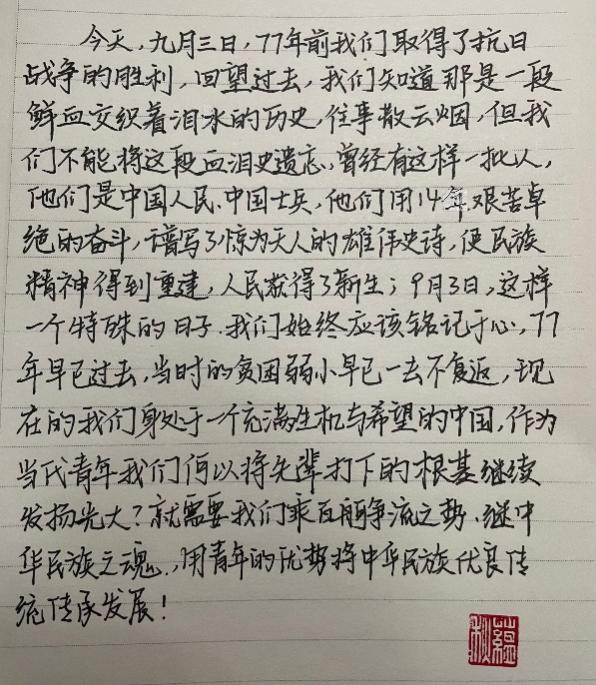 今天，九月三日，77年前我们取得了抗日
战争的胜利，回望过去，我们知道那是一段
鲜血交织着泪水的历史，往事散云烟，但我
们不能将这段血泪史遗忘，曾经有这样一批人，
他们是中国人民、中国士兵，他们用14年艰苦卓
绝的奋斗，谱写了惊为天人的雄伟史诗，使民族
精神得到重建，人民获得了新生；9月3日，这样
一个特殊的日子，我们始终应该铭记于心，77
年早已过去，当时的贫困弱小早已一去不复返，现
在的我们身处于一个充满生机与希望的中国，作为
当代青年我们何以将先辈打下的根基继续
发扬光大？就需要我们乘百舸争流之势，继中
华民族之魂，用青年的优势将中华民族优良传
统传承发展！